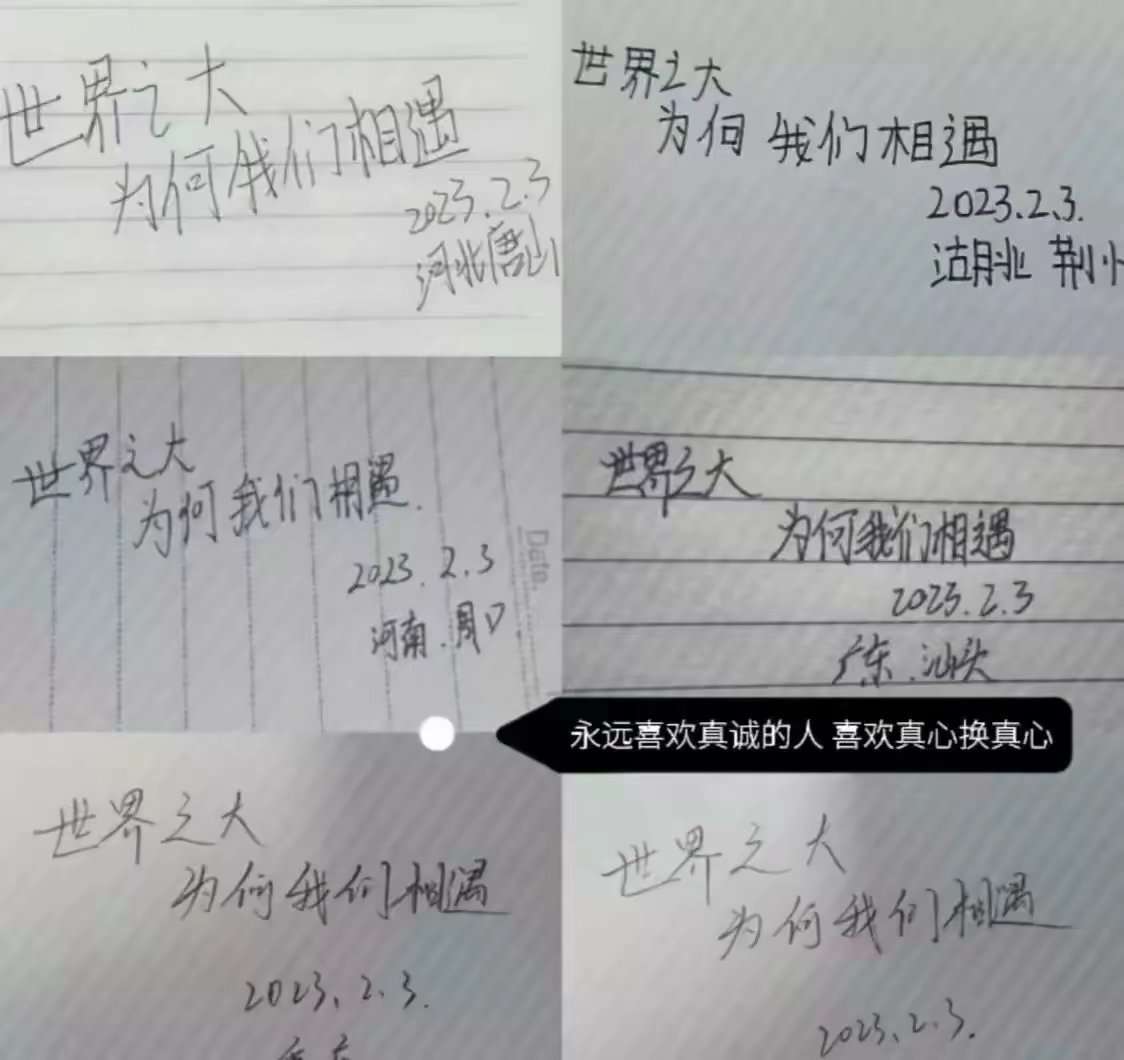 世界之大
为何我们相遇
2023.2.3
河北唐山
世界之大
为何 我们相遇
2023.2.3.
湖北 荆州
世界之大
为何我们相遇.
2023.2.3
河南.周口
Date.
世界之大
为何我们相遇
2023.2.3
广东.汕头
永远喜欢真诚的人 喜欢真心换真心
世界之大
为何我们相遇
2023.2.3.
世界之大
为何我们相遇
2023.2.3.